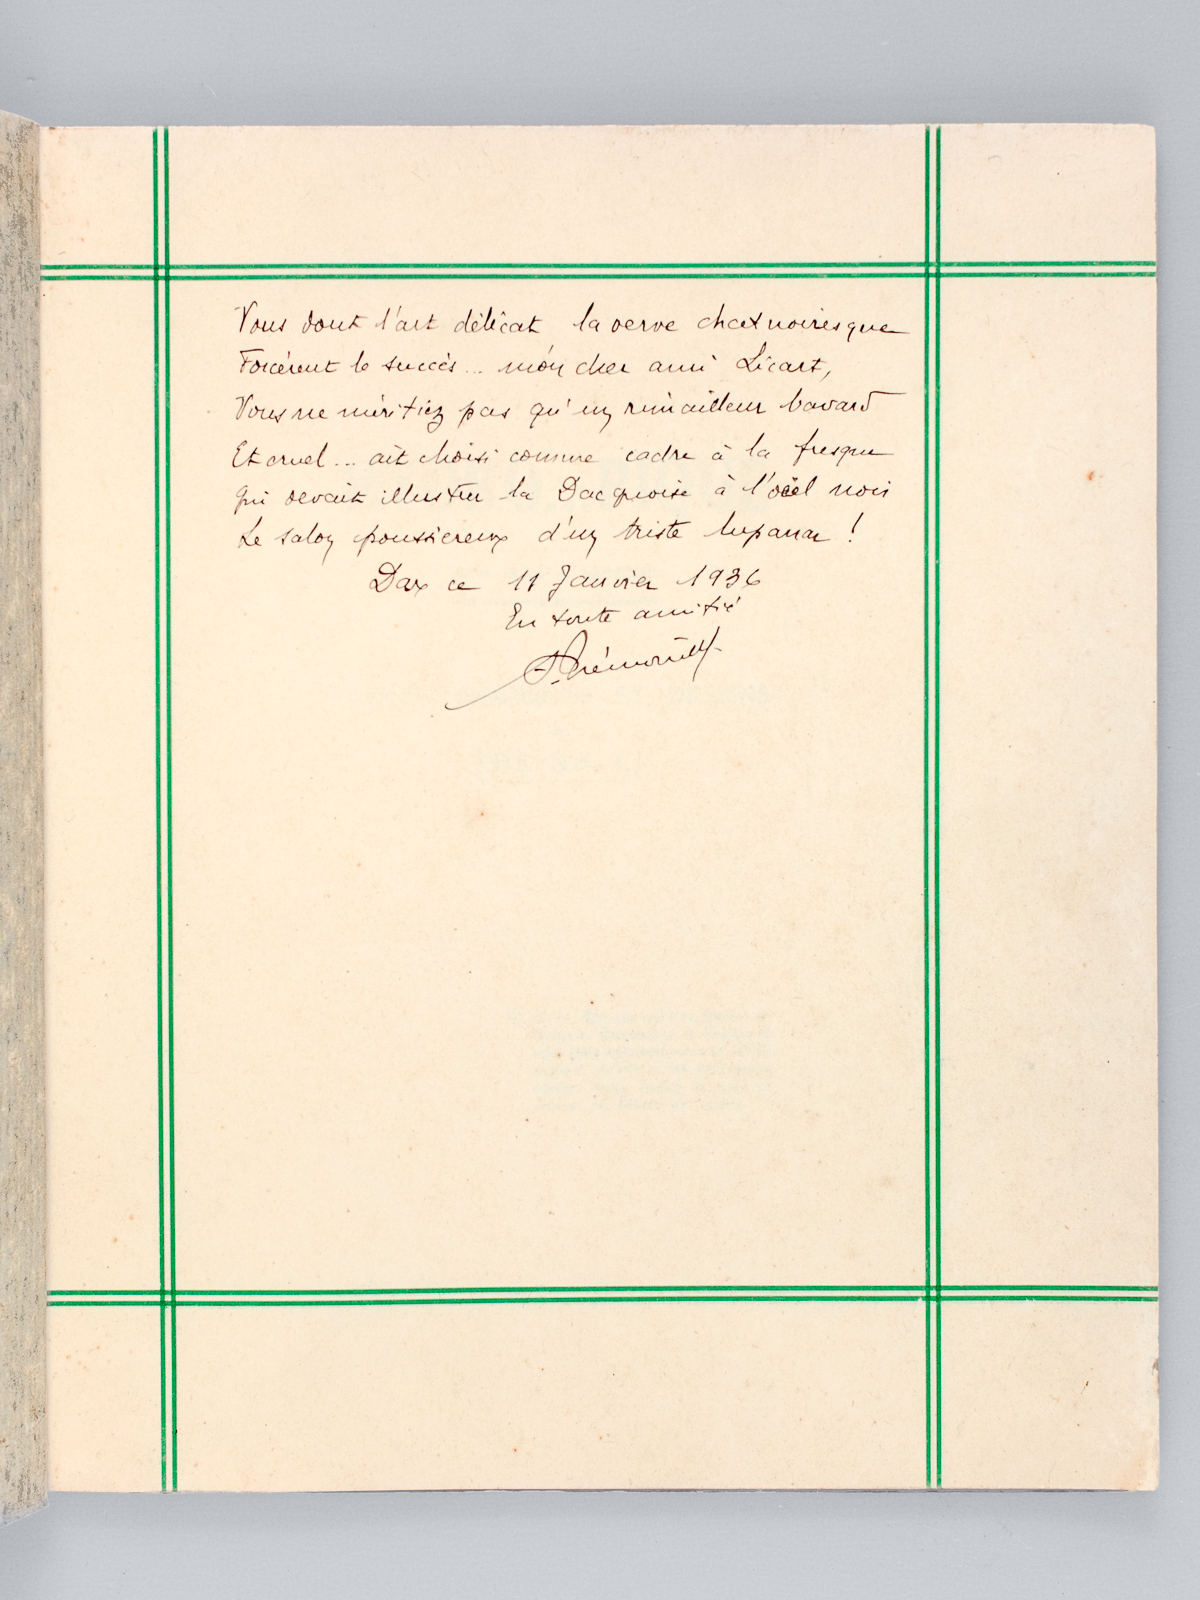 Vous dont l'art délicat la verve chatnoiresque
Forcèrent le succès... mon cher ami Licart,
Vous ne méritiez pas qu'un rimailleur bavard
Et cruel... ait choisi comme cadre à la fresque
Qui devait illustrer la Dacquoise à l'oeil noir
Le salon poussiereux d'un triste lupanar !
Dax ce 11 Janvier 1936
En toute amitié